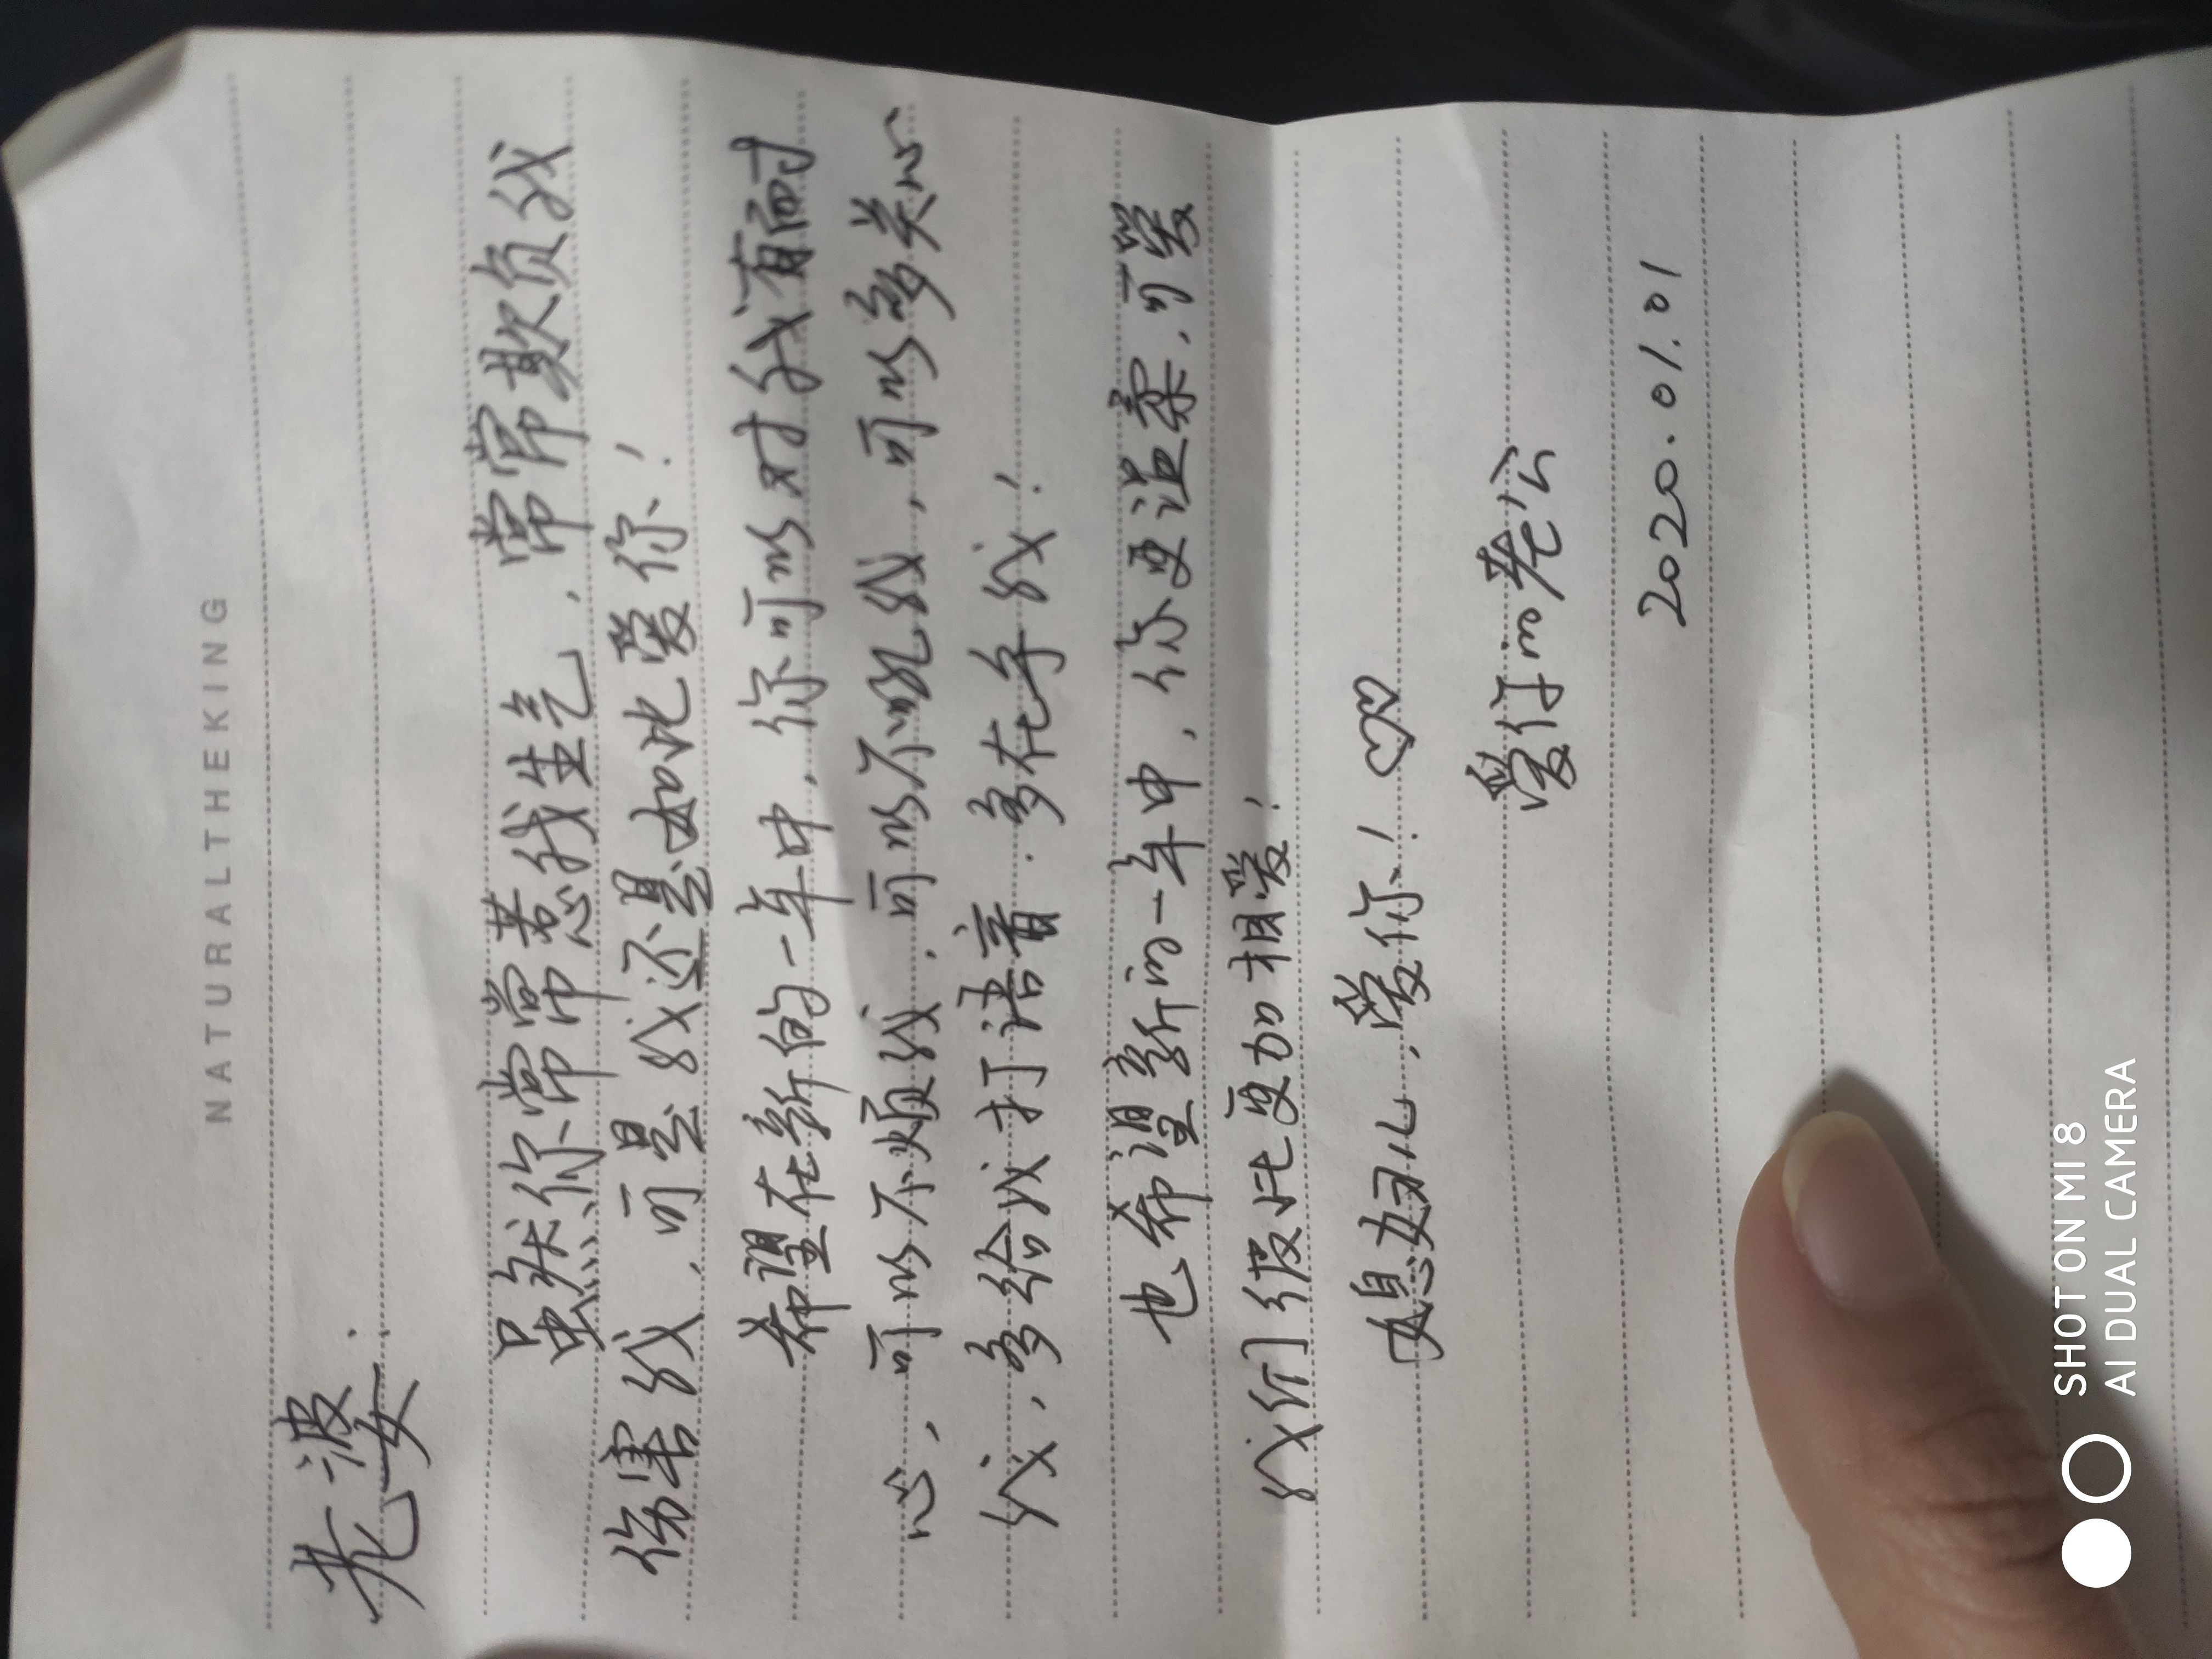 NATURALTHEKING
老婆：
虽然你常常惹我生气，常常欺负我
伤害我，可是我还是如此爱你！
希望在新的一年中，你可以对我有耐
心，可以不烦我，可以不吼我，可以多关心
我，多给我打语音，多在乎我！
也希望新的一年中，你更温柔，可爱
我们彼此更加相爱！
媳妇儿，爱你！♡
爱你的老公
2020.01.01
SHOT ON MI 8
AI DUAL CAMERA